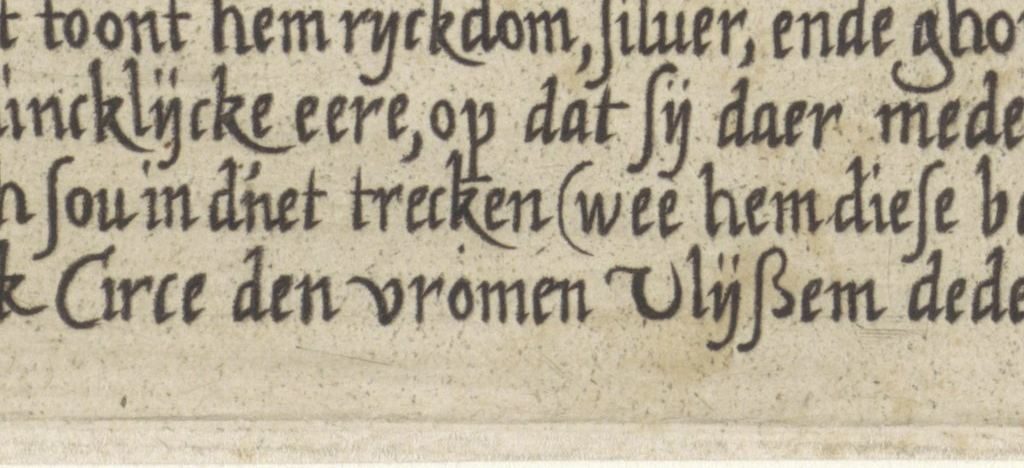 t toont hem ryckdom, ſiluer, ende gho
incklÿcke eere, op dat ſÿ daer mede
n ſou in d'net trecken (wee hem die ſe be
k Circe den vromen Ulÿßem dede